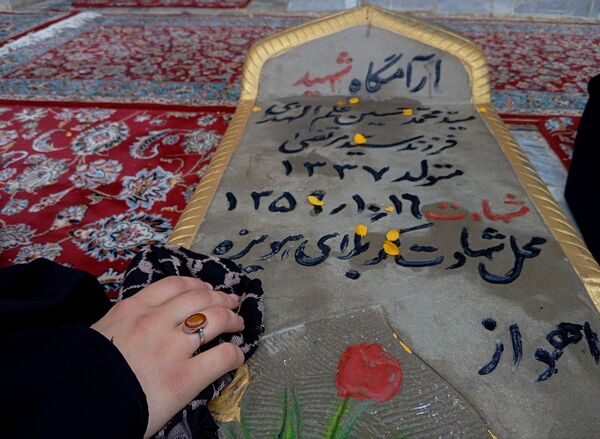 آرامگاه شهید
سید محمد حسین علم الهدی
فرزند سید مرتضی
متولد ۱۳۳۷
شهادت ۱۳۵۹٫۱۰٫۱۶
محل شهادت کربلای هویزه
اهواز